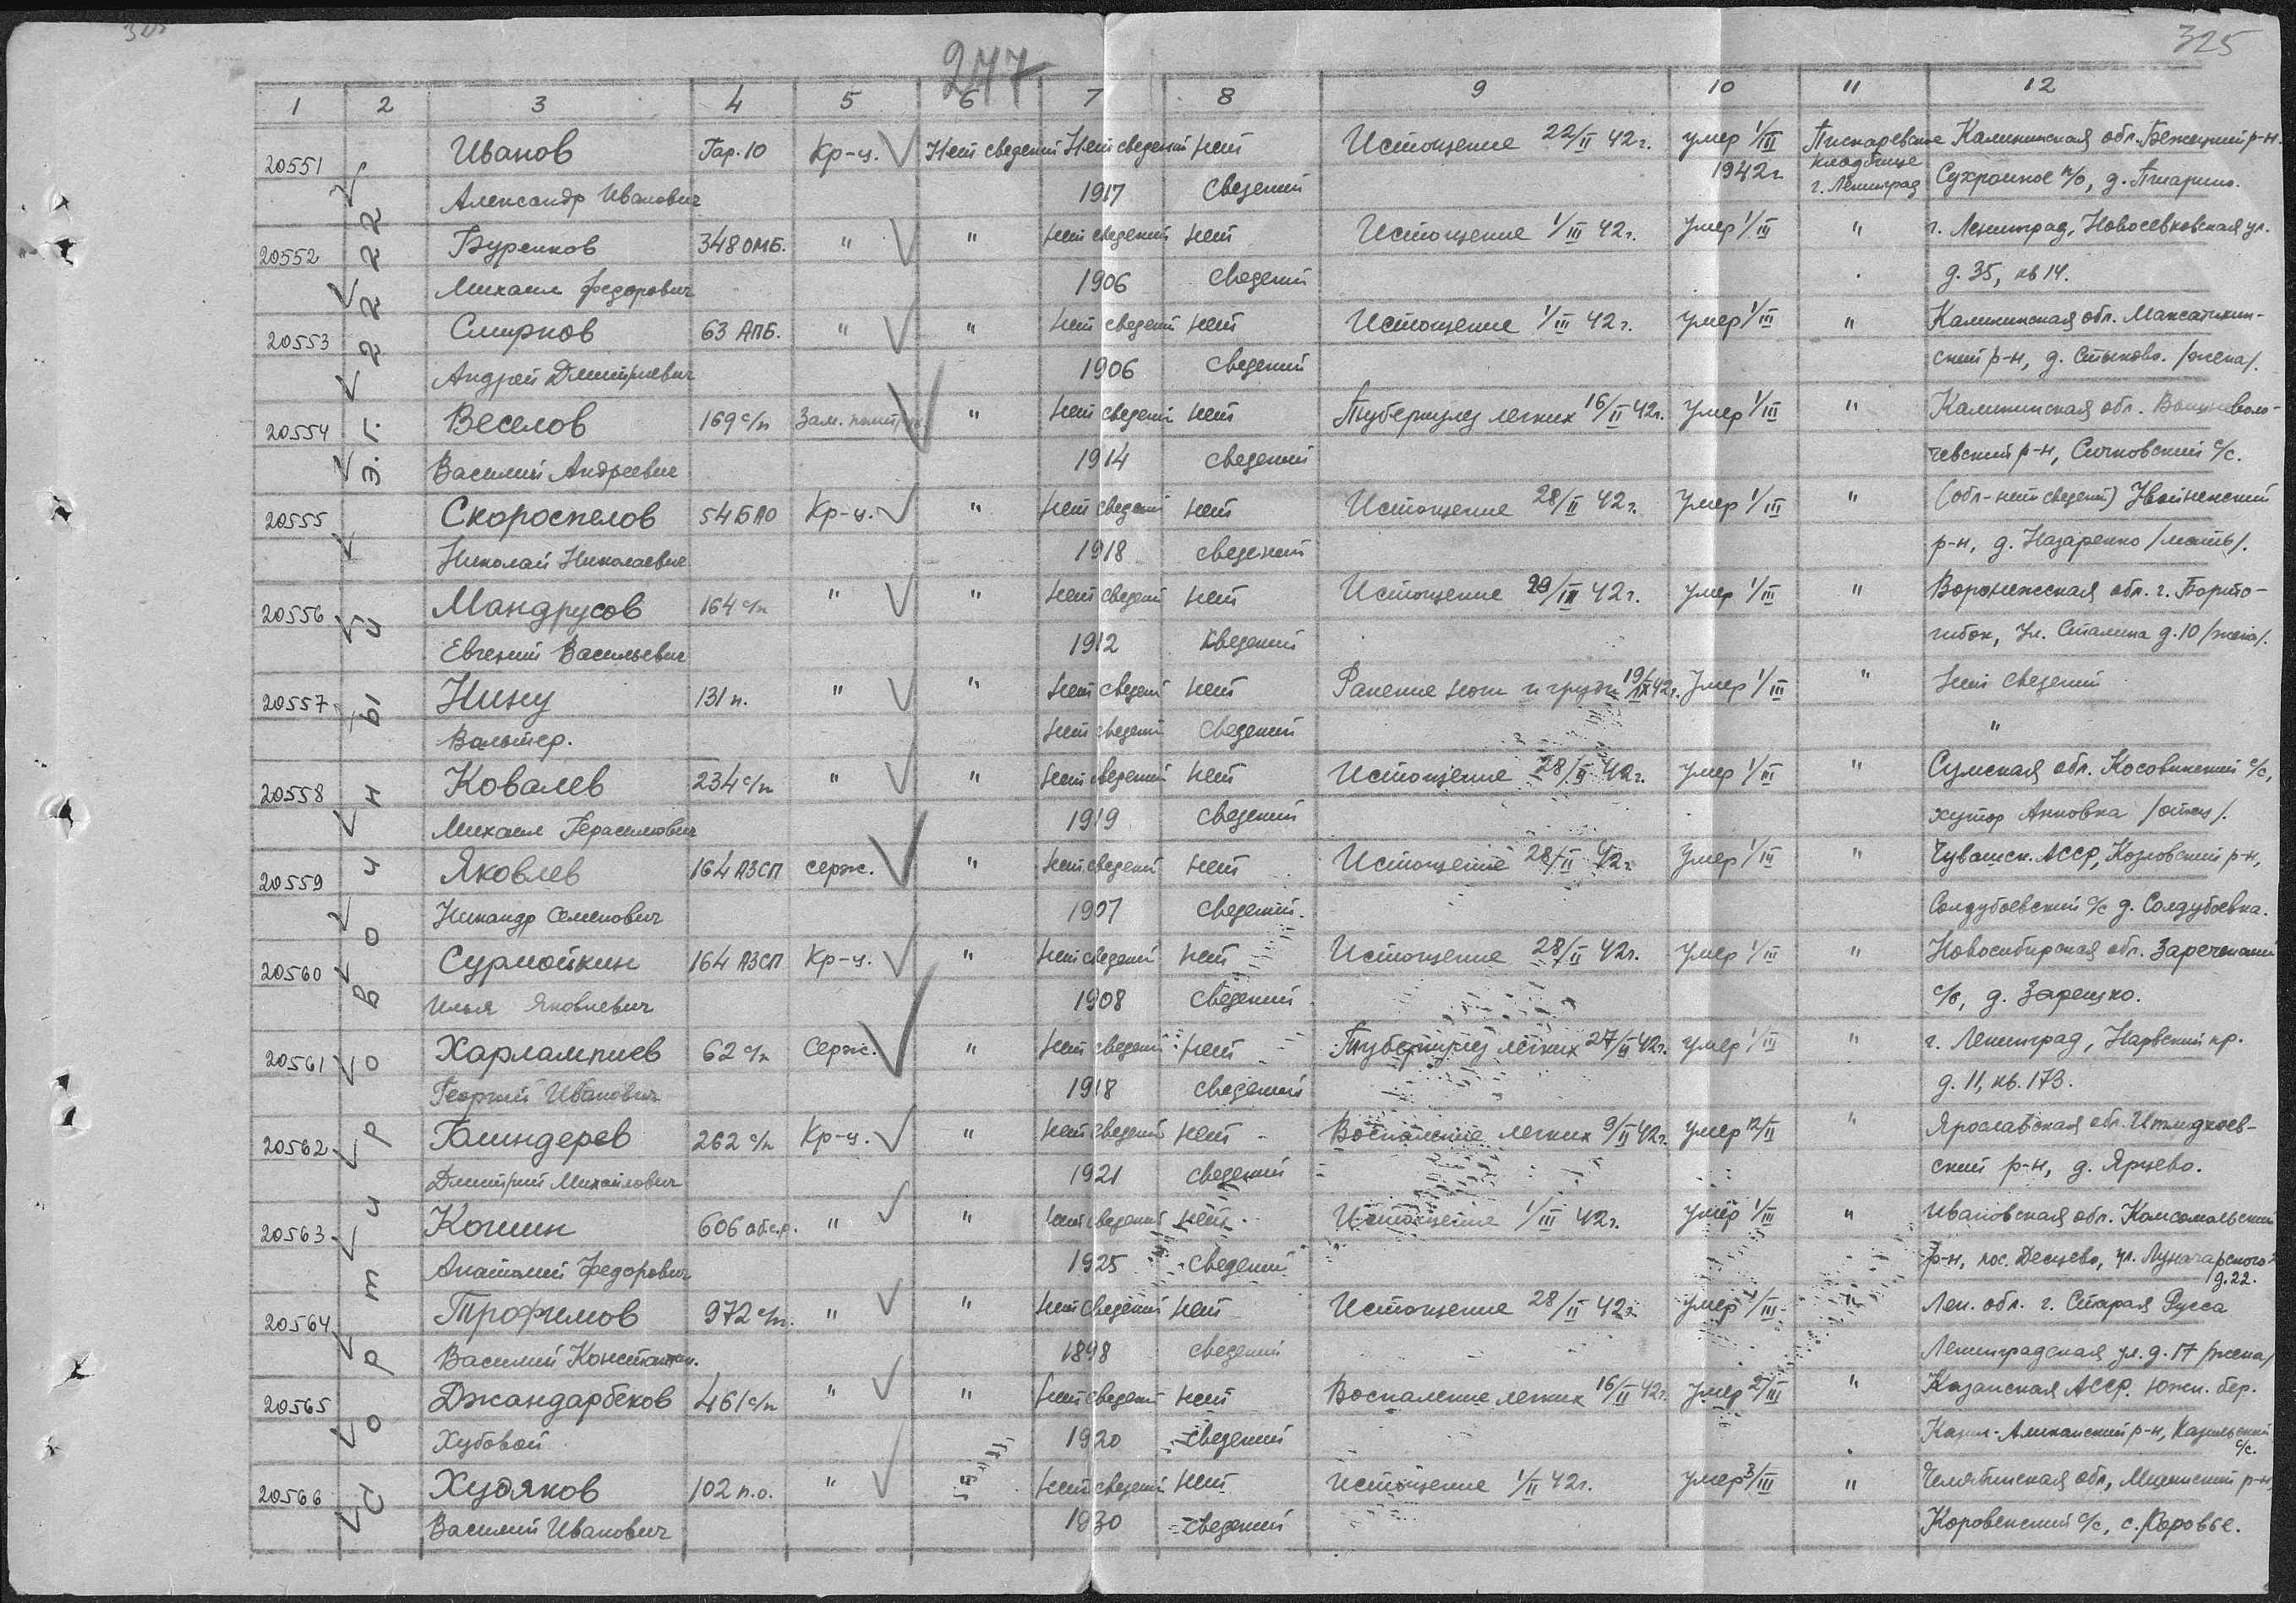 325
247
1 2 3 4 5 6 7 8 9 10 11 12
20551 Иванов Гар. 10 Кр-ц. Нет сведений Нет сведений нет Истощение 22/II 42 г. умер 1/III Пискаревское Калининская обл. Бежецкий р-н.
Александр Иванович 1917 сведений 1942 г кладбище г. Ленинград п/о, д.
20552 Буренков 348 ОМБ. " " нет сведений нет Истощение 1/III 42 г. умер 1/III " г. Ленинград, Новосевковская ул.
Михаил Федорович 1906 сведений д. 35, кв 14.
20553 Смирнов 63 АПБ. " " нет сведений нет Истощение 1/III 42 г. умер 1/III " Калининская обл. Максатихин-
Андрей Дмитриевич 1906 сведений ский р-н, д. Стыково. /жена/.
20554 Веселов 169 с/п Зам. " нет сведений нет Туберкулез легких 16/II 42 г. умер 1/III " Калининская обл.
Василий Андреевич 1914 сведений р-н, Сичковский с/с.
20555 Скороспелов 54 БАО Кр-ц. " нет сведений нет Истощение 28/II 42 г. умер 1/III " (обл-нет сведений)
Николай Николаевич 1918 сведений р-н, д. Назаренко /мать/.
20556 Мандрусов 164 с/п " " нет сведений нет Истощение 42 г. умер 1/III " Воронежская обл. г. Борисо-
Евгений Васильевич 1912 сведений глбск, Ул. Сталина д. 10 /жена/.
20557 Нину 131 п. " " нет сведений нет Ранение ног и груди 42 г. Умер 1/III " Нет сведений
Вальтер. нет сведений сведений "
20558 Ковалев 234 с/п " " нет сведений нет Истощение 28/II 42 г. умер 1/III " Сумская обл. Косовинский с/с,
Михаил Герасимович 1919 сведений хутор Анновка /отец/.
20559 Яковлев 164 АЗСП серж. " нет сведений нет Истощение 28/II 42 г. Умер 1/III " Чувашск. АССР, Козловский р-н,
Никандр Семенович 1907 сведений. Солдубаевский с/с д. Солдубаевка.
20560 Сурмойкин 164 АЗСП Кр-ц. " нет сведений нет Истощение 28/II 42 г. умер 1/III " Новосибирская обл. Зареченский
Илья Яковлевич 1908 сведений с/с, д.
20561 Харлампиев 62 с/п Серж. " нет сведений нет Туберкулез легких 27/II 42 г. умер 1/III " г. Ленинград, Нарвский пр.
Георгий Иванович 1918 сведений д. 11, кв. 173.
20562 Галиндерев 262 с/п Кр-ц. " нет сведений нет Воспаление легких 9/II 42 г. умер 12/II " Ярославская обл.
Дмитрий Михайлович 1921 сведений ский р-н, д. Ярцево.
20563 Кошин 606 " " нет сведений нет Истощение 1/III 42 г. умер 1/III " Ивановская обл. Комсомольский
Анатолий Федорович 1925 сведений р-н, пос. Ул. Луначарского д. 22.
20564 Трофимов 972 с/п. " " нет сведений нет Истощение 28/II 42 г. умер 1/III " Лен. обл. г. Старая Русса
Василий Константин. 1898 сведений Ленинградская ул. д. 17 /жена/
20565 Джандарбеков 461 с/п " " нет сведений нет Воспаление легких 16/II 42 г. Умер 2/III " Казанская АССР. Южн. бер.
Хубовой 1920 сведений р-н, с/с.
20566 Худяков 102 п.о. " нет сведений нет Истощение 1/II 42 г. умер 3/III " Челябинская обл, р-н,
Василий Иванович сведений Коровенский с/с, с. Коровье.
Сортировочный Э.Г. 2222